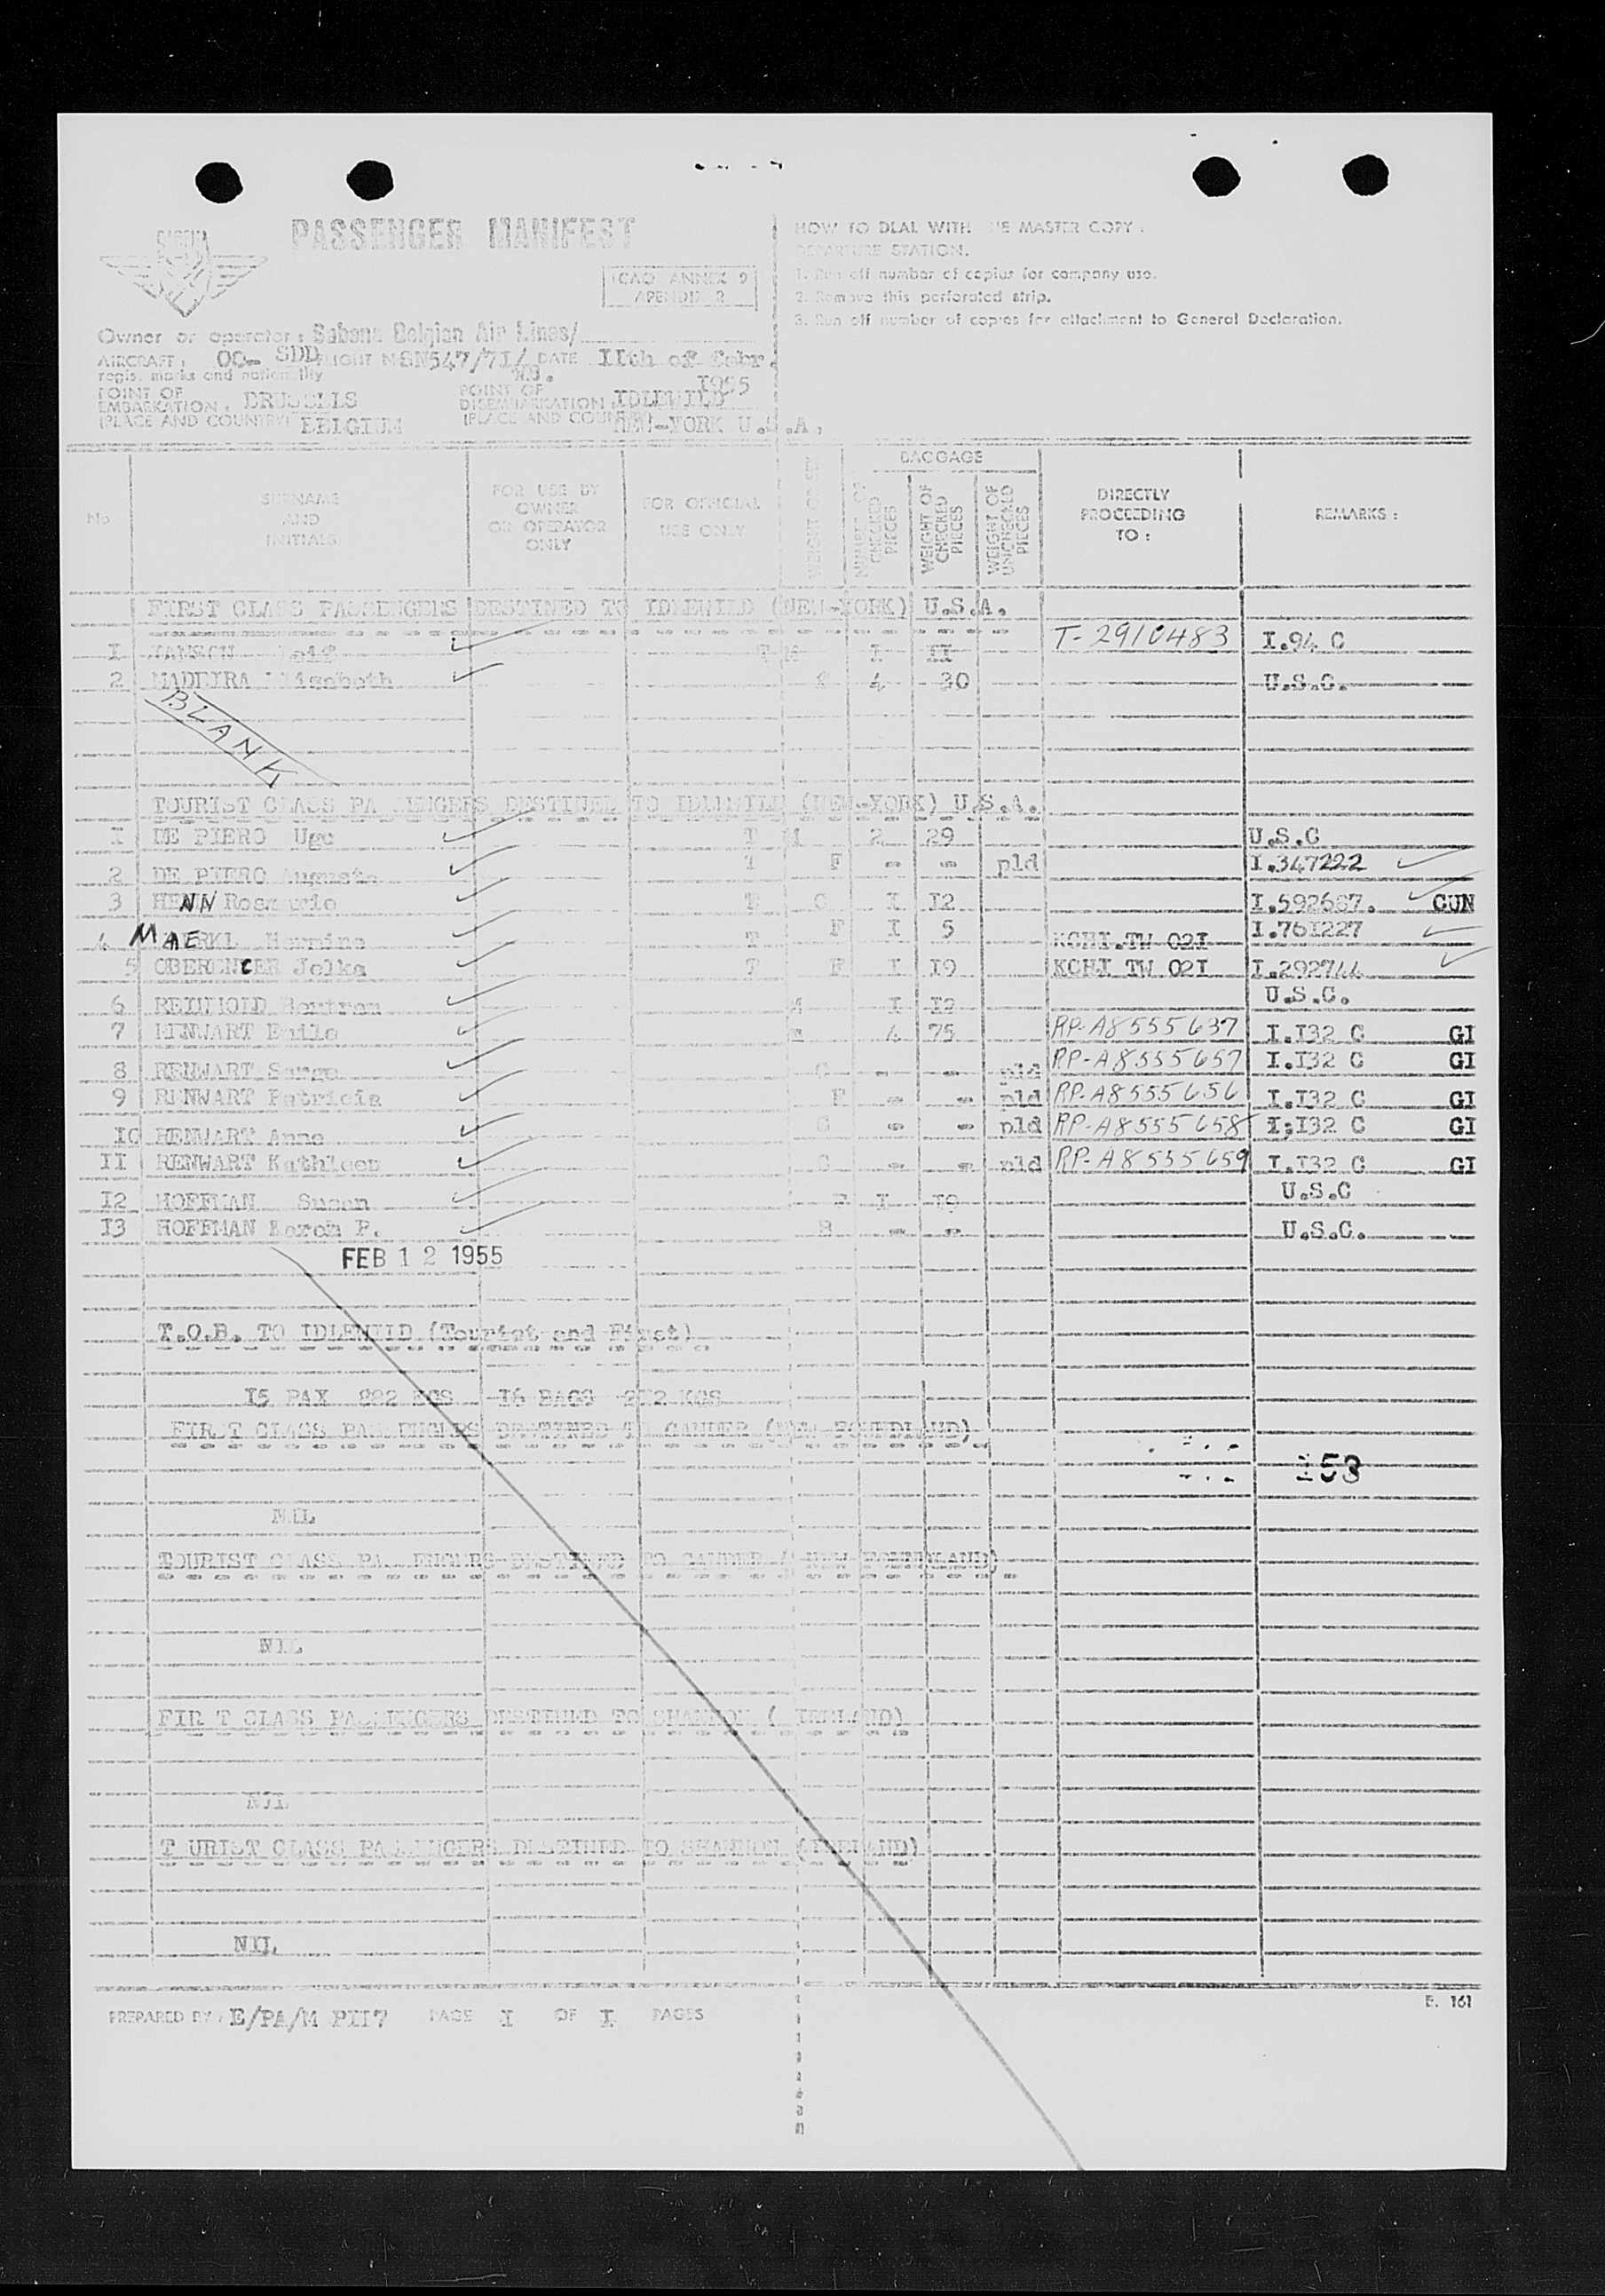 SABENA
PASSENGER MANIFEST
ICAO ANNEX 9
APENDIX 2
HOW TO DEAL WITH THE MASTER COPY :
DEPARTURE STATION.
1. Run off number of copies for company use.
2. Remove this perforated strip.
3. Run off number of copies for attachment to General Declaration.
Owner or operator : Sabena Belgian Air Lines/
AIRCRAFT : OO- SDD FLIGHT N° SN547/71/ DATE 11th of Febr.
regis. marks and nationality 1955
POINT OF EMBARKATION : BRUSSELS POINT OF DISEMBARKATION : IDLEWILD
(PLACE AND COUNTRY) BELGIUM (PLACE AND COUNTRY) NEW-YORK U.S.A.
No SURNAME AND INITIALS FOR USE BY OWNER OR OPERATOR ONLY FOR OFFICIAL USE ONLY BAGGAGE NUMBER OF CHECKED PIECES WEIGHT OF CHECKED PIECES WEIGHT OF UNCHECKED PIECES DIRECTLY PROCEEDING TO : REMARKS :
FIRST CLASS PASSENGERS DESTINED TO IDLEWILD (NEW-YORK) U.S.A.
I I II T-2910483 I.94 C
2 MADEIRA Elisabeth F 4 30 U.S.C.
BLANK
TOURIST CLASS PA ENGERS DESTINED TO IDLEWILD (NEW-YORK) U.S.A.
I DE PIERO Ugo T M 2 29 U.S.C
2 DE PIERO Augusta T F - - pld I.347222
3 HENN Rosmarie T C I I2 I.592687. CUN
4 MAERKL Hermine T F I 5 KCHI.TW 02I I.761227
5 OBERENCER Jelka T F I I9 KCHI TW 02I I.292744
6 REINHOLD Bertram M I I2 U.S.C.
7 RENWART Emile 4 75 RP-A8555637 I.I32 C GI
8 RENWART Serge C - - pld RP-A8555657 I.I32 C GI
9 RENWART Patricia F - - pld RP-A8555656 I.I32 C GI
IO RENWART Anne C - - pld RP-A8555658 I;I32 C GI
II RENWART Kathleen C - - pld RP-A8555659 I.I32 C GI
I2 HOFFMAN Susan F I I9 U.S.C
I3 HOFFMAN P. - - U.S.C.
FEB 12 1955
T.O.B. TO IDLEWILD (Tourist and First)
I5 PAX 882 KGS I6 BAGS 2I2 KGS
FIRST CLASS PASSENGERS DESTINED TO GANDER (NEW FOUNDLAND)
153
NIL
TOURIST CLASS PA ENGERS DESTINED TO GANDER ( NEW FOUNDLAND)
NIL
FIR T CLASS PASSENGERS DESTINED TO SHANNON ( IRELAND)
NIL
T URIST CLASS PASSENGERS DESTINED TO SHANNON (IRELAND)
NIL
PREPARED BY : E/PA/M PII7 PAGE I OF I PAGES
E. 161